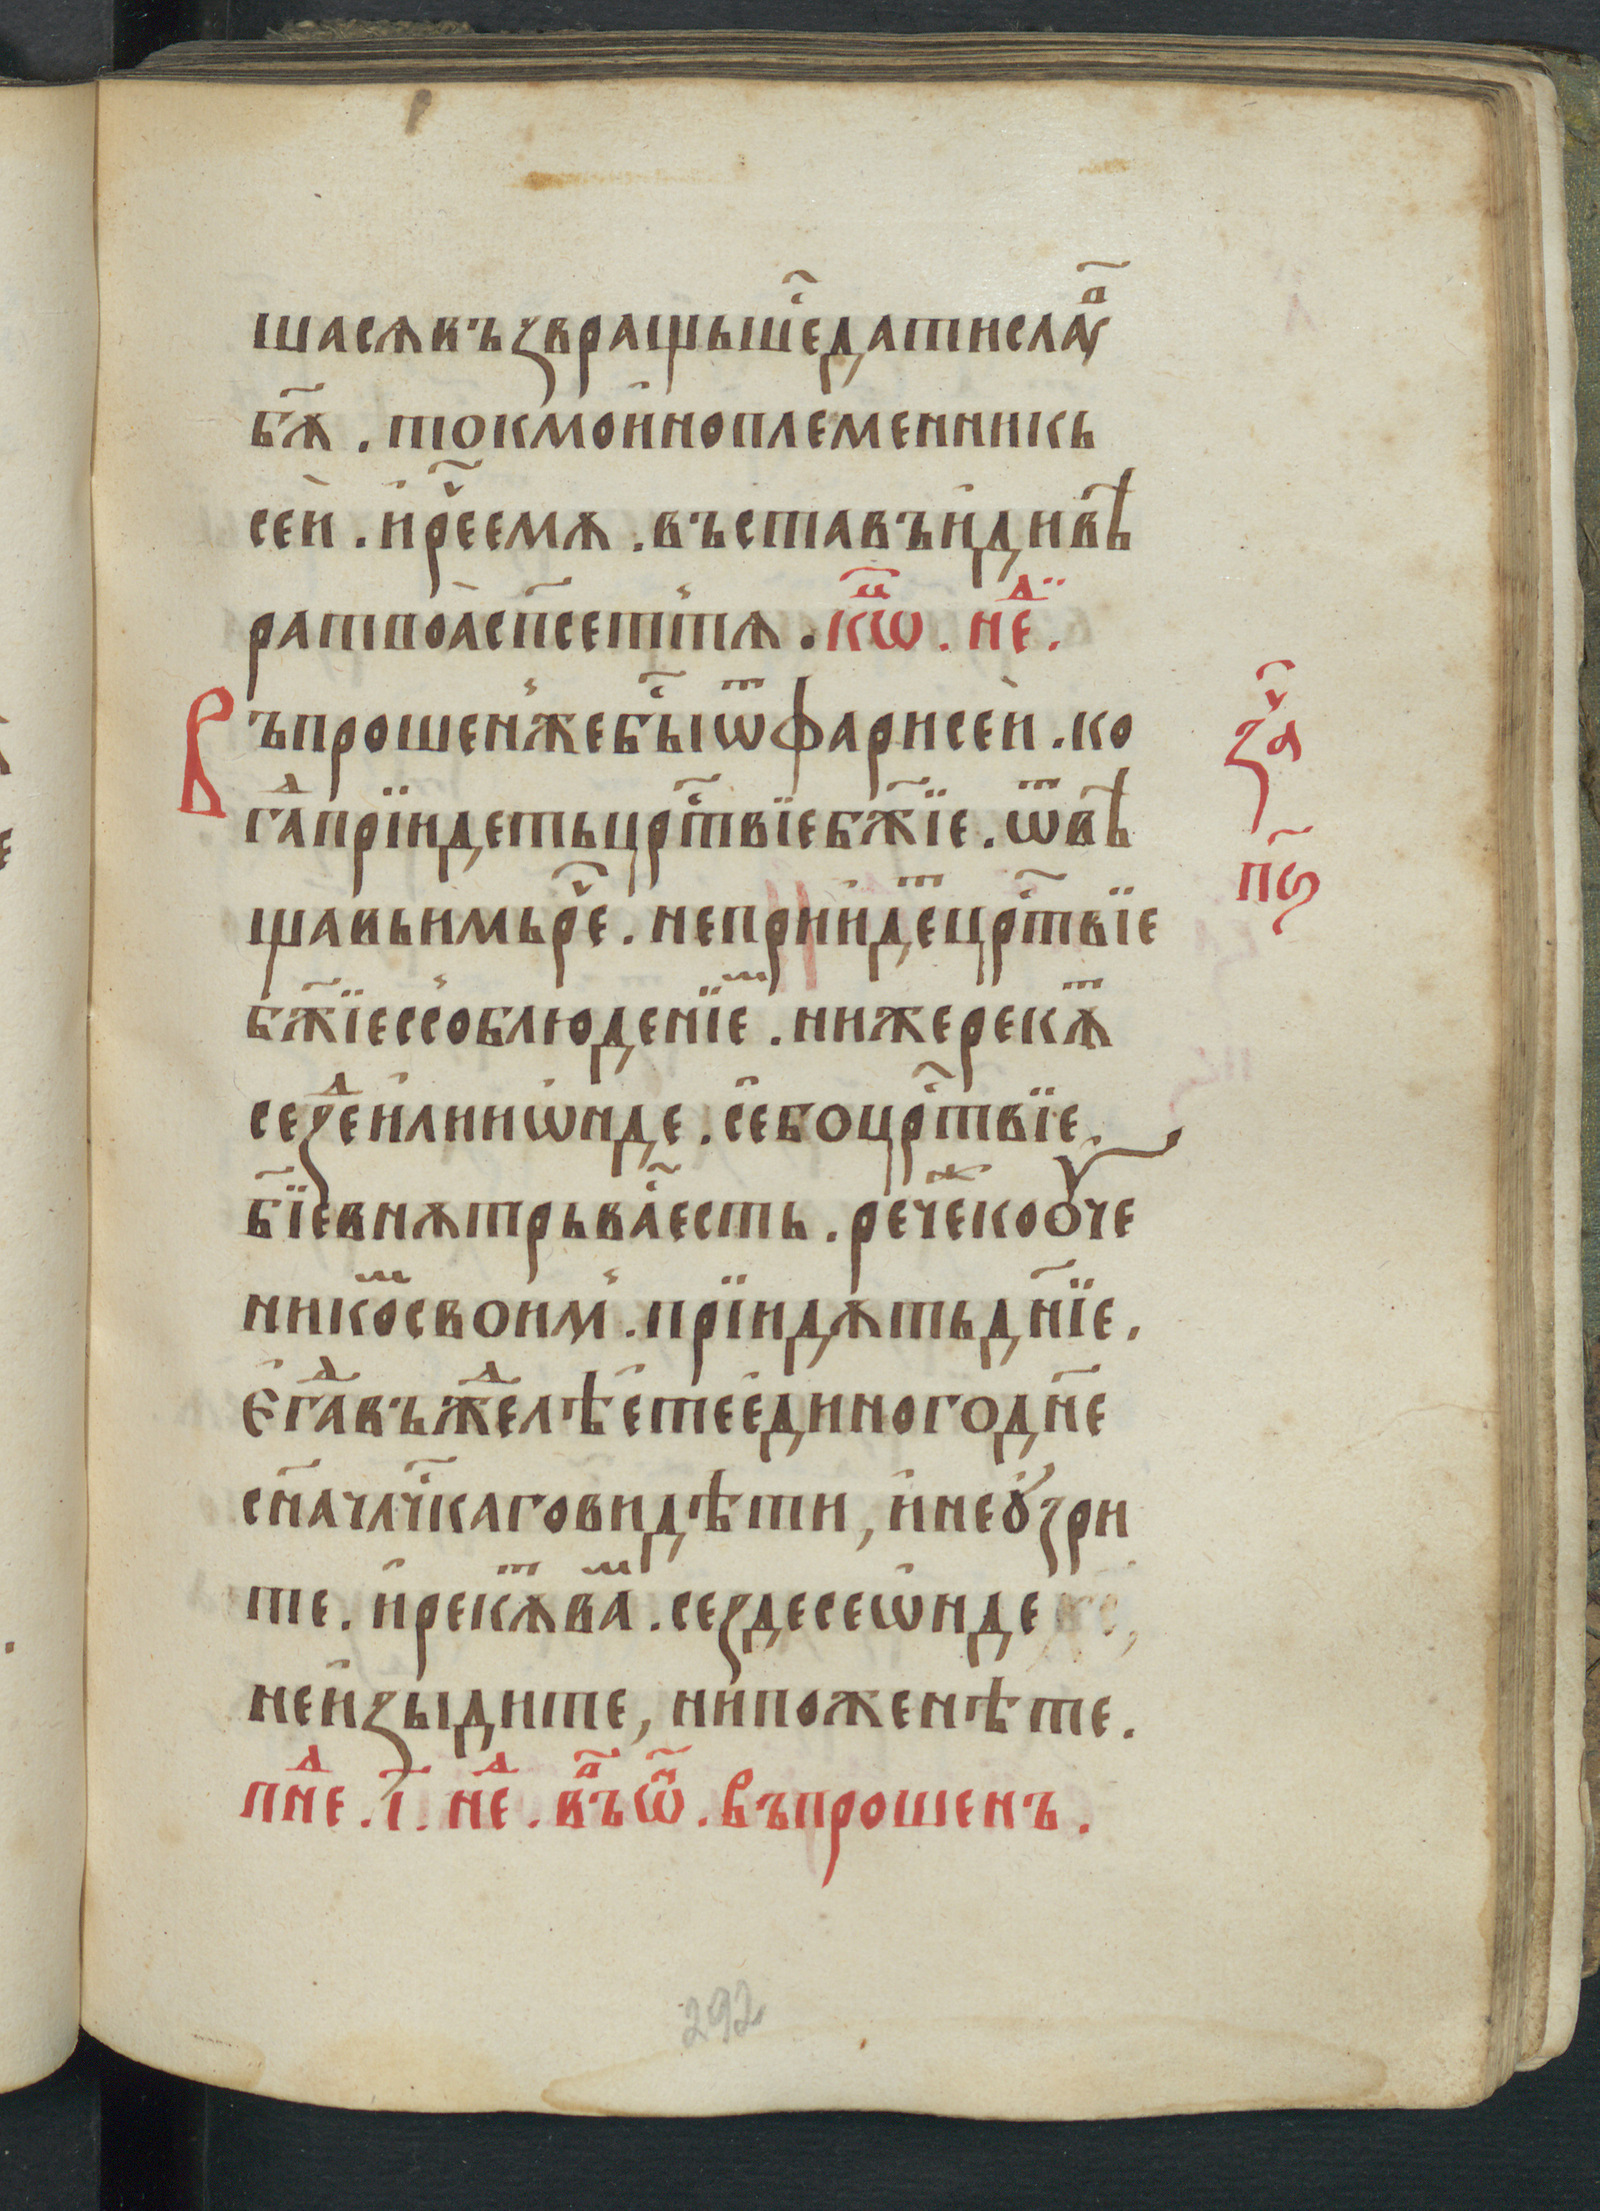 шасѧ възвращьшеⷭ҇ дати слаⷡ҇ꙋ
бг҃ѫ . токмо иноплеменникь
сеи . и реⷱ҇ емѫ . въставъ иди вѣ
ра твоа сп҃се тѧ . коⷰ҇ѡ . неⷣ .
Въпрошен же быⷭ҇ ѿ фарисеи . ко
гаⷣ прїидеть црⷭ҇твїе бж҃їе . ѿвѣ
щавь имь реⷱ҇ . не прииⷣеⷮ црⷭ҇твїе
бж҃їе с соблюденїеⷨ . ни же рекѫⷮ
се зеⷣ или ѡнде . се бо црⷭ҇твїе
бж҃їе внѫтрь ваⷭ҇ есть . рече же к оуче
никоⷨ своим . прїидѫть дн҃їе .
Єгаⷣ въжеⷣелѣете единого дн҃е
сн҃а чл҃чⷭ҇каго видѣти , и не ꙋзри
те . и рекѫⷮ ваⷨ . се зде се ѡнде
не изыдите , ни поженѣте .
пнеⷣ . і҃ . неⷣ . въⷪ҇ ѡⷩ҇ . въпрошенъ .
заⷱ҇
пѕ҃
292